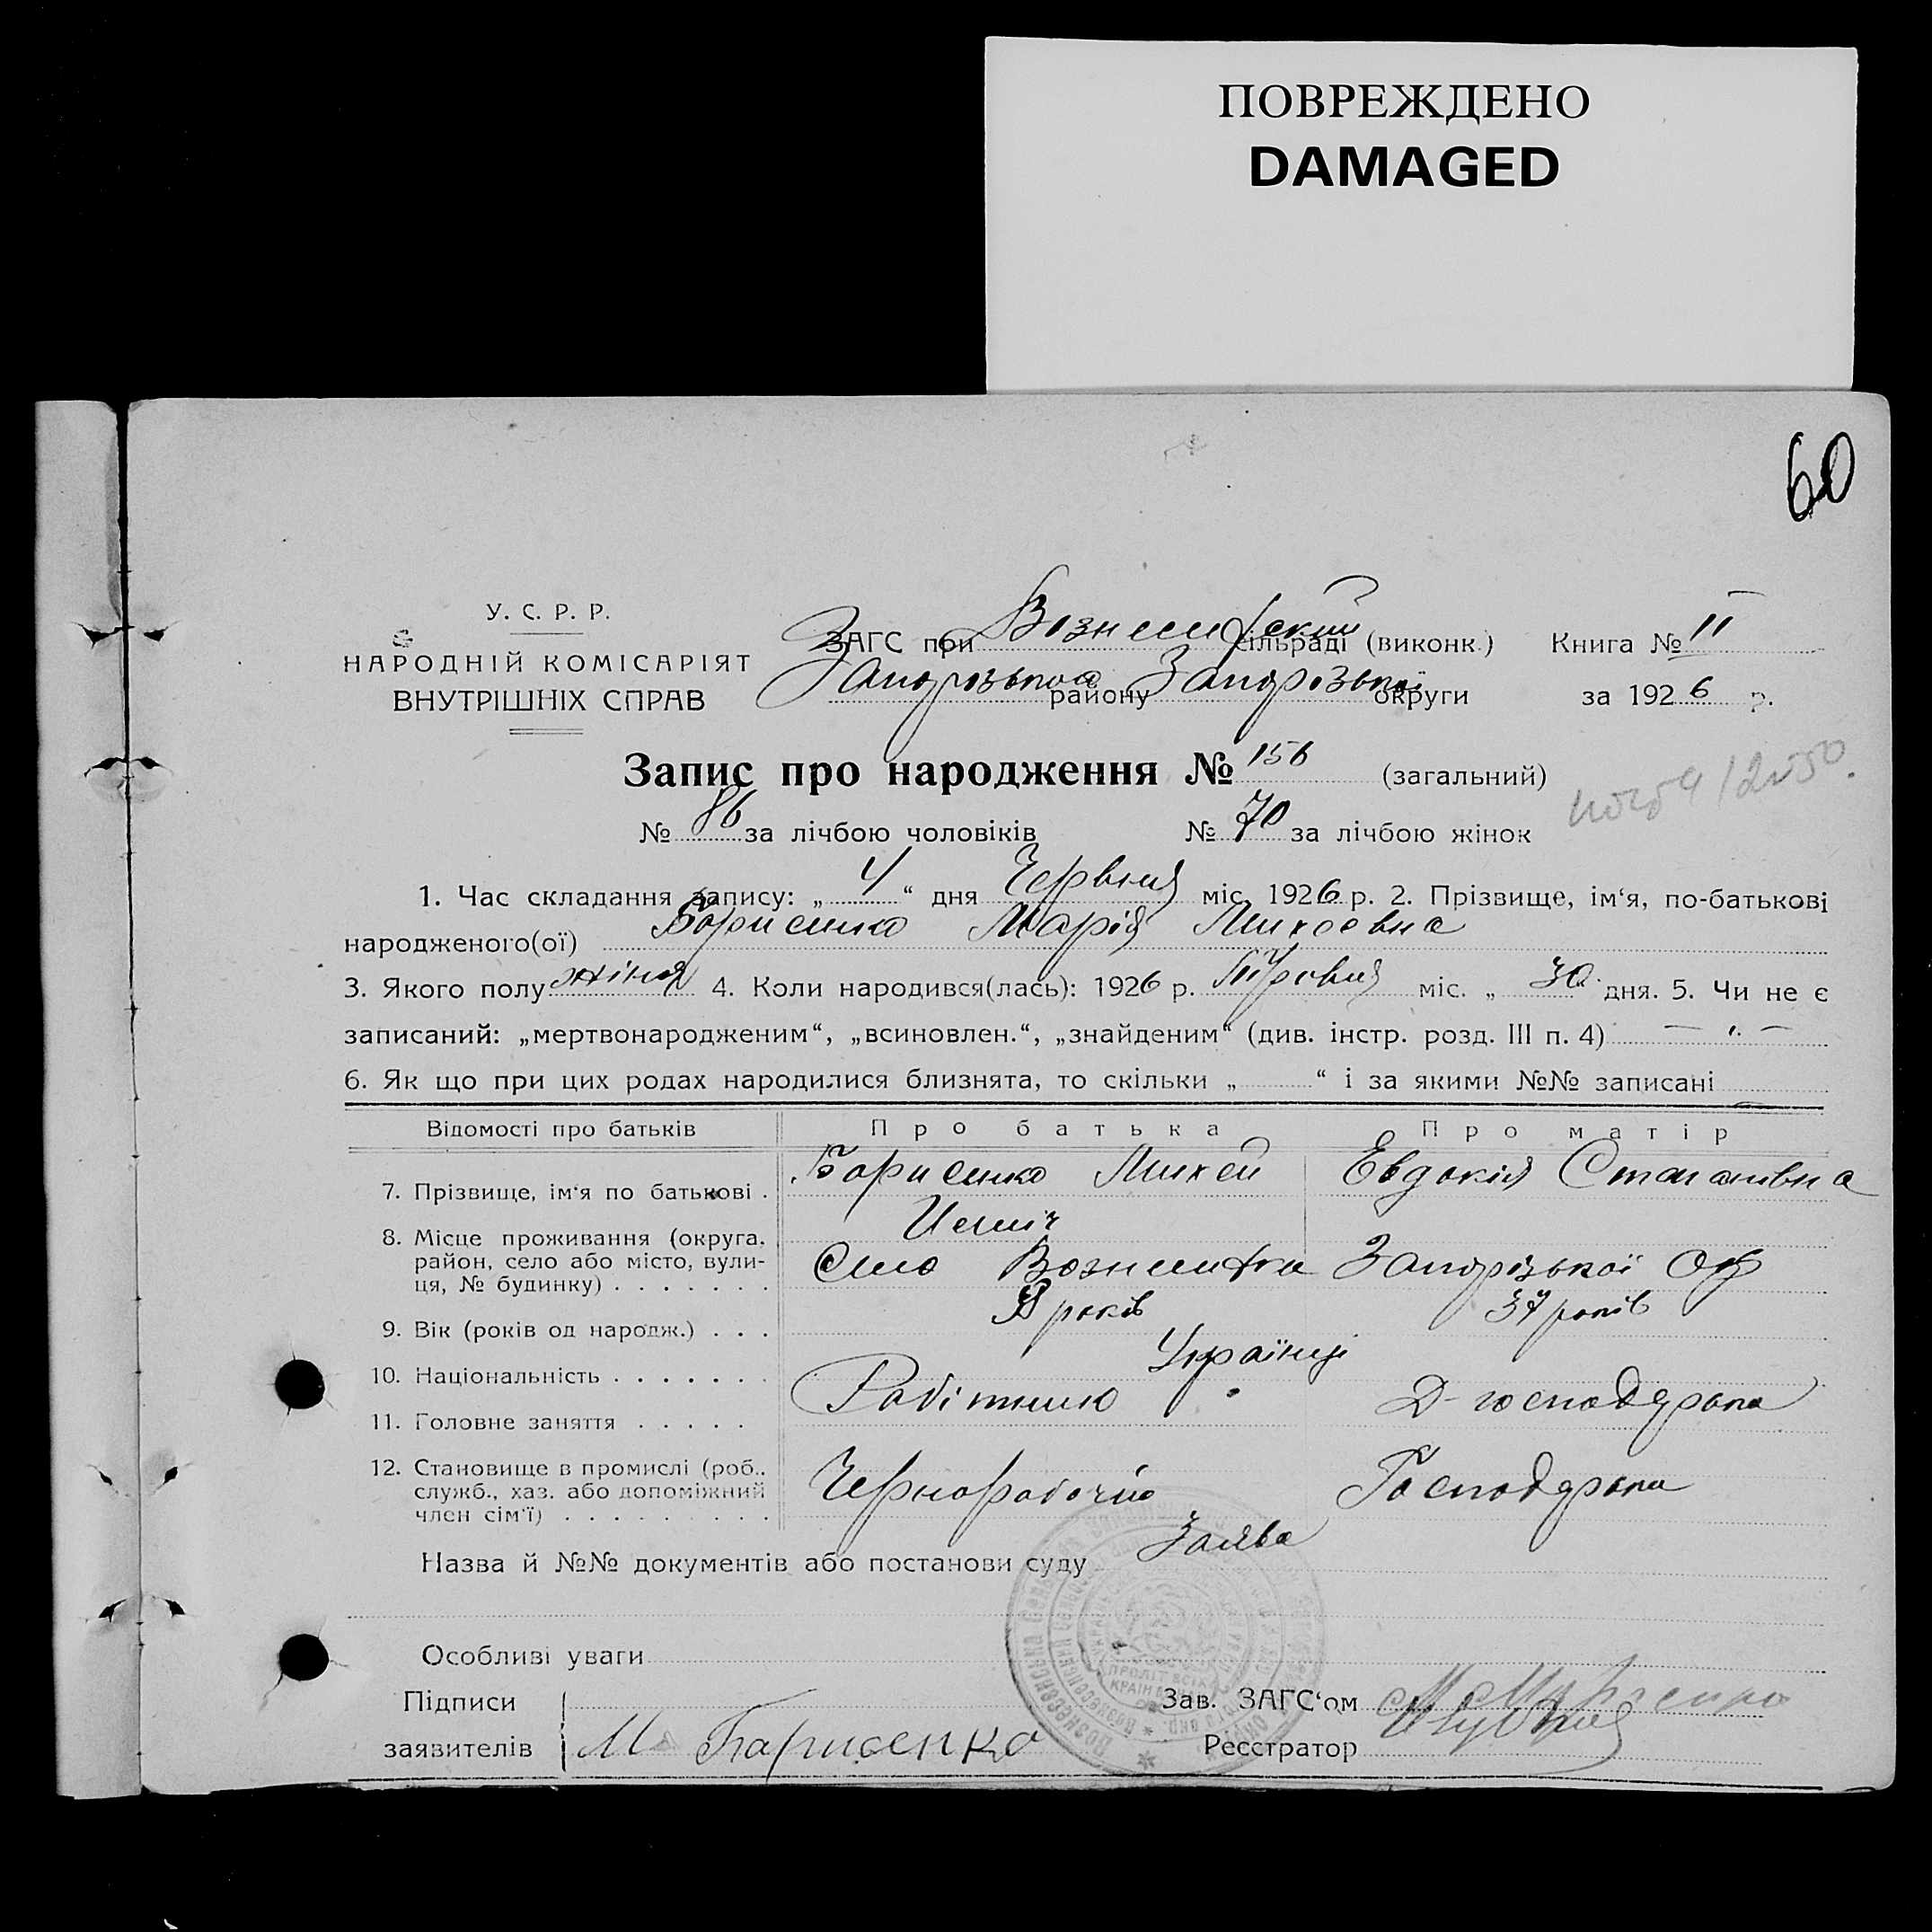 ПОВРЕЖДЕНО
DAMAGED
60
У. С. Р. Р.
НАРОДНІЙ КОМІСАРІЯТ
ВНУТРІШНІХ СПРАВ
ЗАГС при сільраді (виконк.) Книга № II
району Запорізької округи за 1926 р.
Запис про народження № 156 (загальний)
№ 86 за лічбою чоловіків № 70 за лічбою жінок
1. Час складання запису: „ 4 “ дня Червня міс. 1926 р. 2. Прізвище, ім‘я, по-батькові
народженого(ої) Борисенко Марія Михеевна
3. Якого полу жіноч 4. Коли народився(лась): 1926 р. міс. „ 30 дня. 5. Чи не є
записаний: „мертвонародженим“, „всиновлен.“, „знайденим“ (див. інстр. розд. III п. 4) — „ —
6. Як що при цих родах народилися близнята, то скільки „ “ і за якими №№ записані
Відомості про батьків Про батька Про матір
7. Прізвище, ім‘я по батькові . Борисенко Михей Евдокія Степанівна
8. Місце проживання (округа, район, село або місто, вулиця, № будинку) . . . . . . . Село Вознесенка Запорізької Окр
9. Вік (років од народж.) . . . років 37 років
10. Національність . . . . . . . Українці
11. Головне заняття . . . . . Робітник Д-господарка
12. Становище в промислі (роб., служб., хаз. або допоміжний член сім‘ї) . . . . . . . . . Чернорабочій Господарка
Назва й №№ документів або постанови суду Заява
Особливі уваги
Підписи Зав. ЗАГС‘ом
заявителів М Борисенко Реєстратор